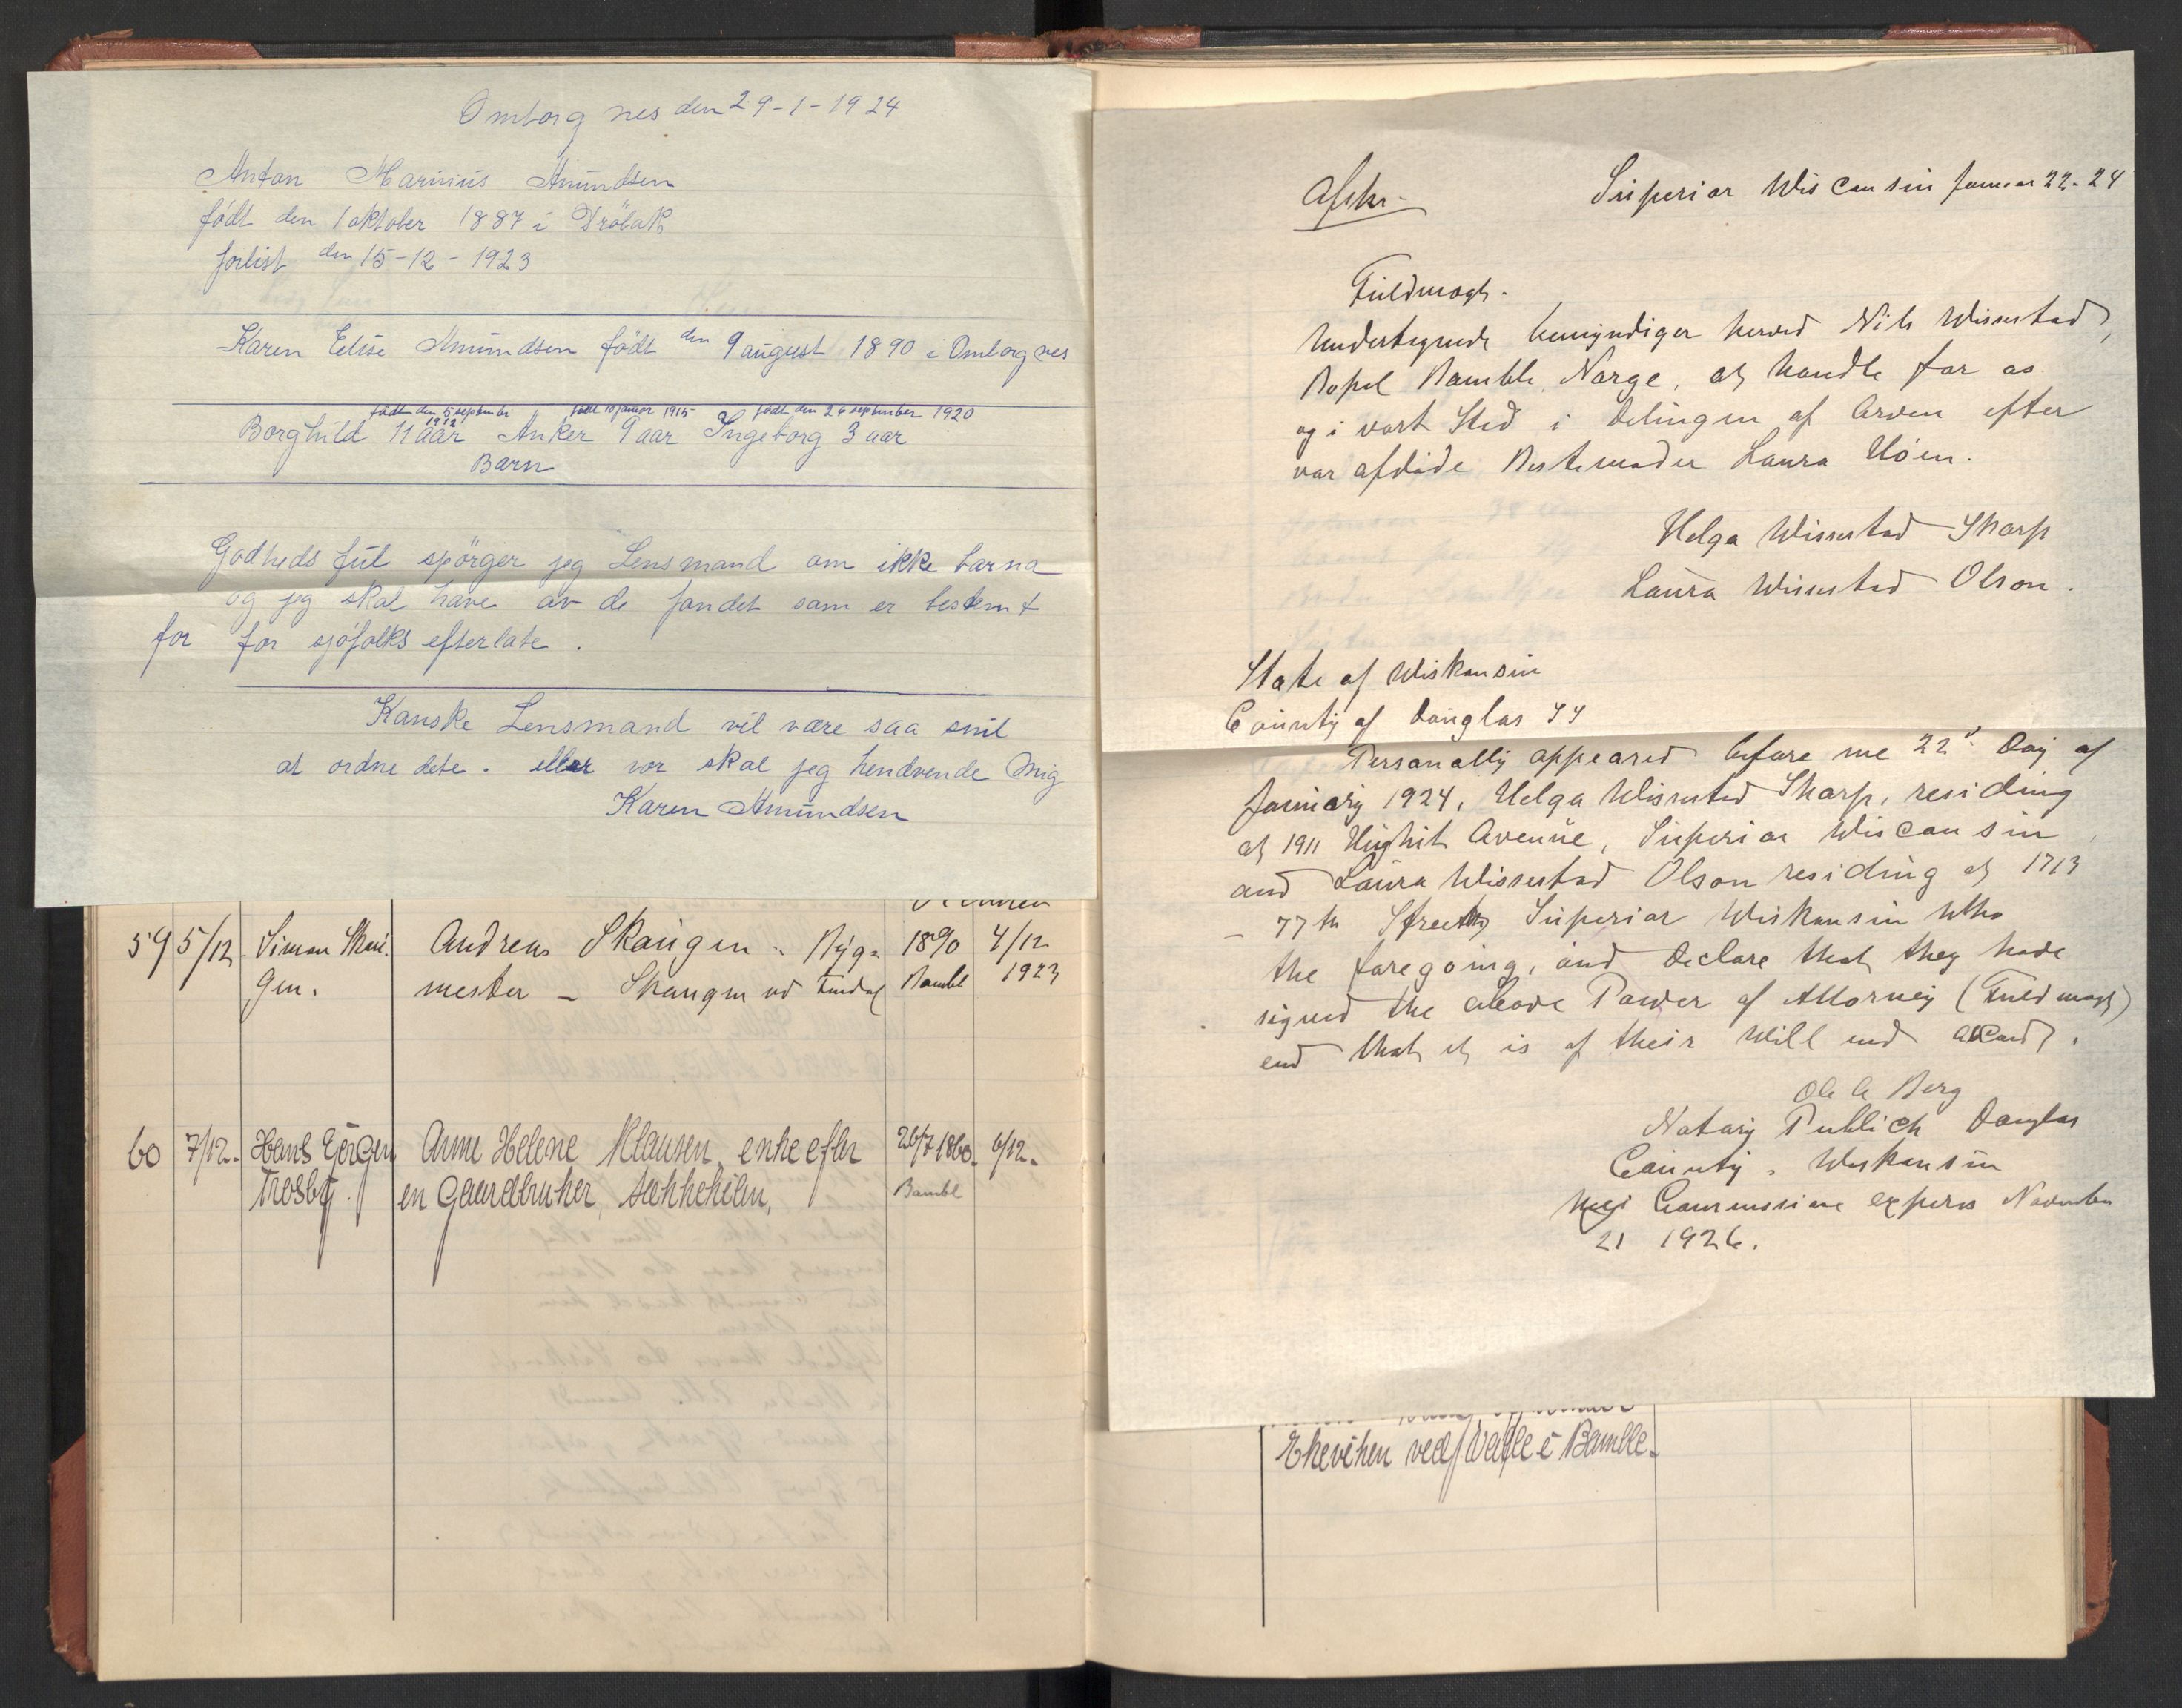 Omborgnes den 29-1-1924
Anton Marinius Amundsen
født den 1 oktober 1887 i Drøbak
forlist den 15-12-1923
Karen Eelise Amundsen født den 9 august 1890 i Omborgnes
født den 5 september 1912 født 10 januar 1915 født den 26 september 1920
Borghild 11 aar Anker 9 aar Ingeborg 3 aar
Barn
Godheds ful spörger jeg Lensmand om ikke barna
og jeg skal have av de fondet som er bestemt
for for sjöfolks efterlate.
Kanske Lensmand vil være saa snil
at ordne dete. eller vor skal jeg hendvende Mig
Karen Amundsen
59 5/12 Simon Skau- Andreas Skaugen - Byg- 1890 4/12
gen. mester - Skaugen vd Bambl 1923
60 7/12. Hans Görgen Anne Helene Klausen, enke efter 26/7 1860. 6/12.
Trosby. en Gaardbruker, Bambl
Afskr. Superior Wisconsin Januar 22-24
Fuldmagt.
Undertegnede bemyndiger herved Nils Wissestad,
Bopel Bamble, Norge, at handle for os
og i vort Sted i Delingen af Arven efter
vor afdøde Bestemoder Laura Uöen.
Helga Wissestad Sharp
Laura Wissestad Olson.
State of Wiskonsin
County of Douglas SS
Personally appeared before me 22d Day of
January 1924, Helga Wissestad Sharp, residing
at 1911 Hughit Avenue, Superior Wisconsin,
and Laura Wissestad Olson residing at 1713
- 77th Street, Superior Wiskonsin Who
the foregoing, and Declare that they have
signed the above Power of Attorney (Fuldmagt)
end that it is of their Will end accord.
Ole A Berg
Notary Publich Douglas
County. Wiskonsin
Commissione expires November
21 1926.
Ekeviken ved Valle i Bamble.